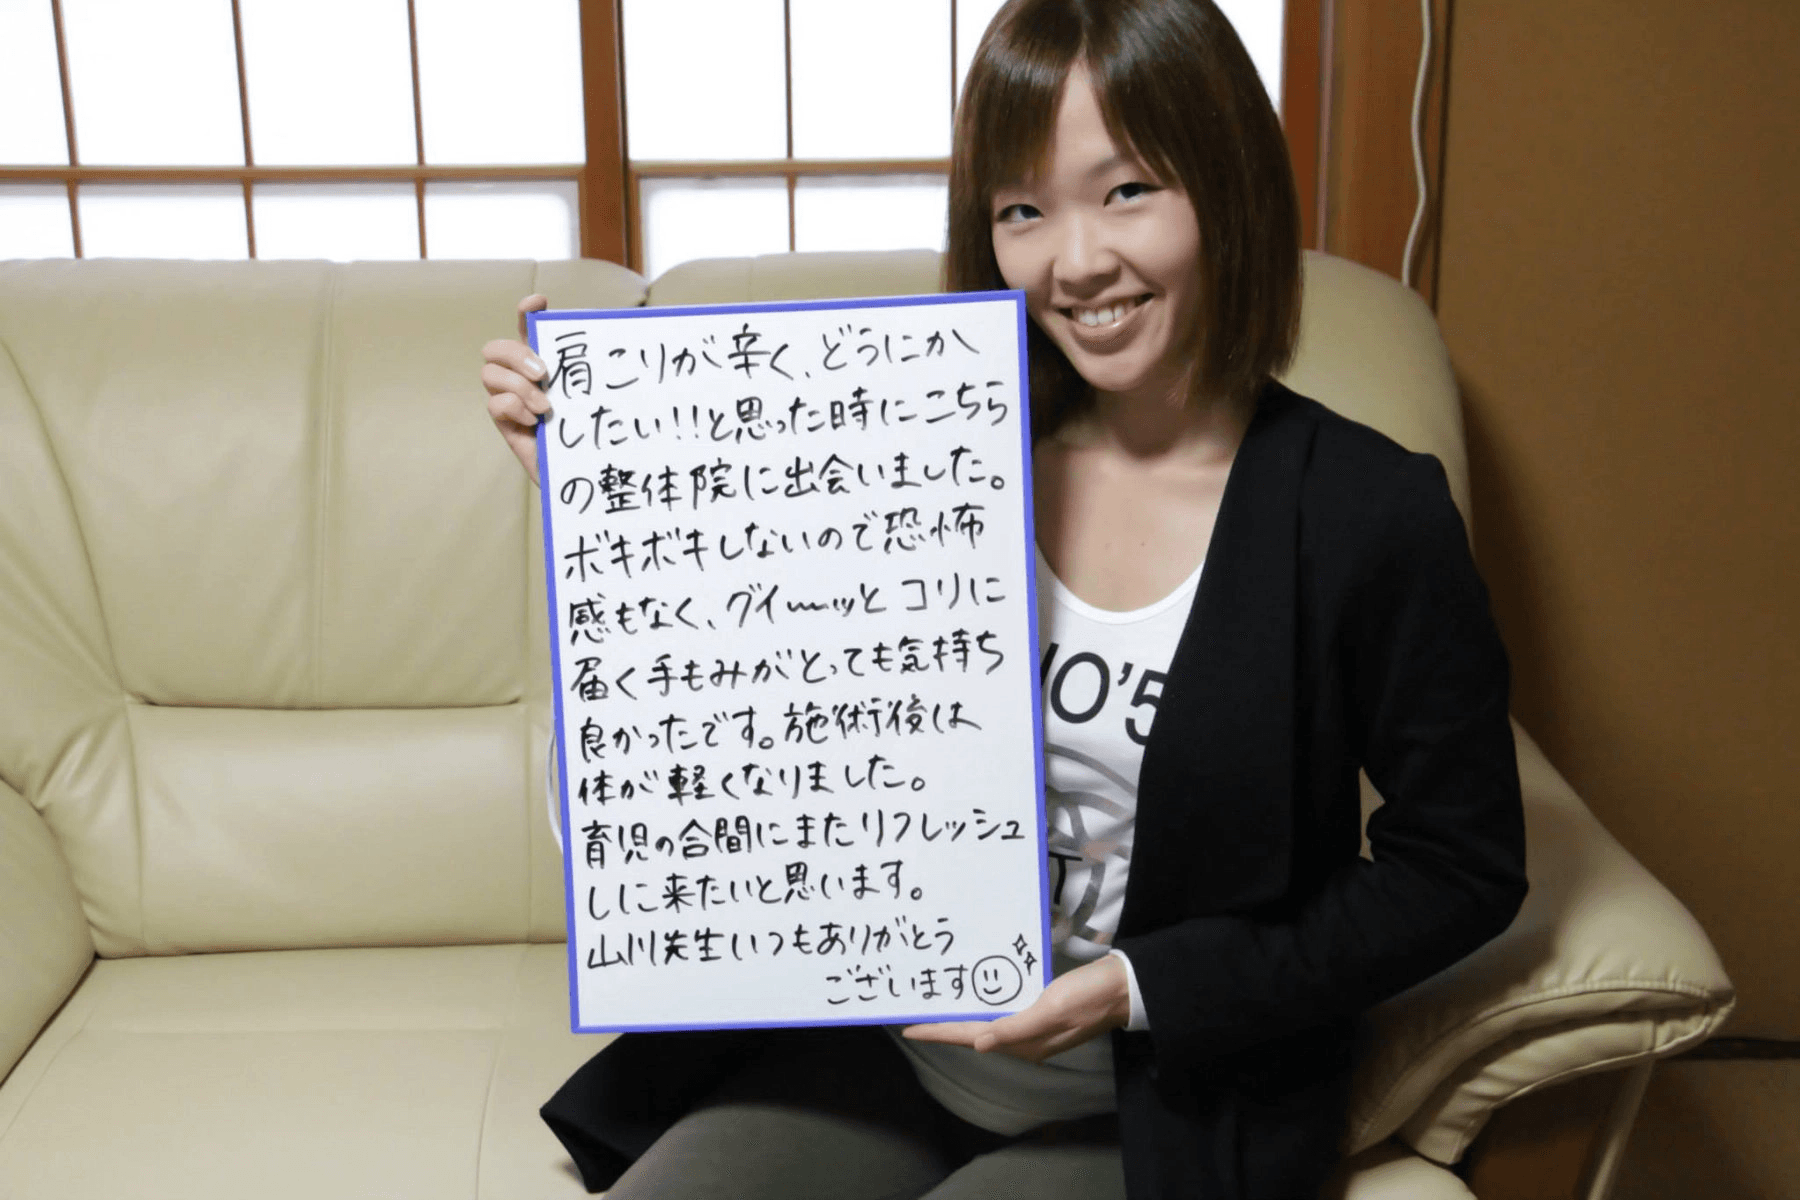 肩こりが辛く、どうにか
したい!!と思った時にこちら
の整体院に出会いました。
ボキボキしないので恐怖
感もなく、グイ〜ッとコリに
届く手もみがとっても気持ち
良かったです。施術後は
体が軽くなりました。
育児の合間にまたリフレッシュ
しに来たいと思います。
山川先生いつもありがとう
ございます
O'5
T